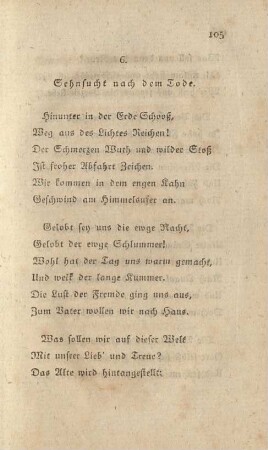 105
6.
Sehnsucht nach dem Tode.
Hinunter in der Erde Schooß,
Weg aus des Lichtes Reichen!
Der Schmerzen Wuth und wilder Stoß
Ist froher Abfahrt Zeichen.
Wir kommen in dem engen Kahn
Geschwind am Himmelsufer an.
Gelobt sey uns die ewge Nacht,
Gelobt der ewge Schlummer!
Wohl hat der Tag uns warm gemacht,
Und welk der lange Kummer.
Die Lust der Fremde ging uns aus,
Zum Vater wollen wir nach Haus.
Was sollen wir auf dieser Welt
Mit unsrer Lieb' und Treue?
Das Alte wird hintangestellt: